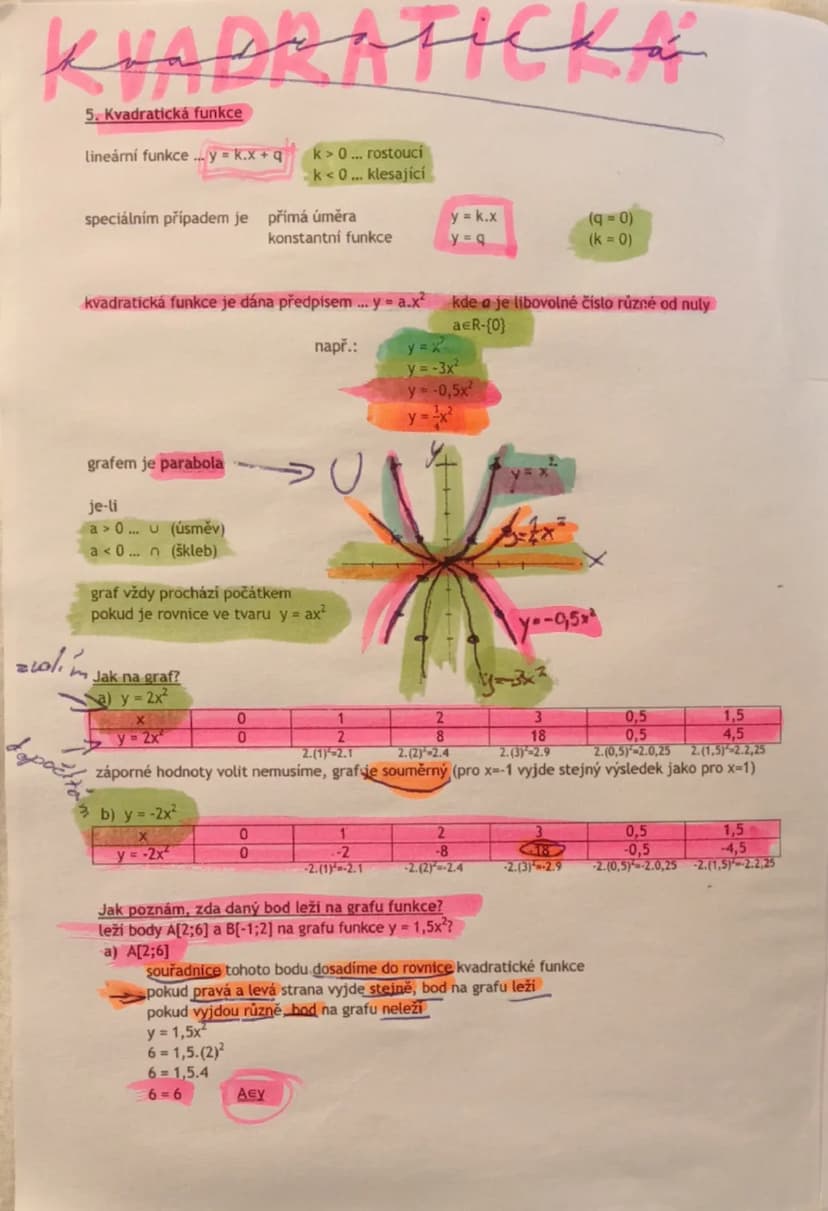 KVADRATICKÁ
kvadratická
5. Kvadratická funkce
lineární funkce ... y = k.x + q k > 0 ... rostoucí
k < 0 ... klesající
speciálním případem je přímá úměra y = k.x (q = 0)
konstantní funkce y = q (k = 0)
kvadratická funkce je dána předpisem ... y = a.x² kde a je libovolné číslo různé od nuly
a∈R-{0}
např.: y = x²
y = -3x²
y = -0,5x²
y = ¼x²
grafem je parabola → U
y
y = x²
je-li
a > 0 ... ∪ (úsměv)
y=¼x²
a < 0 ... ∩ (škleb)
x
graf vždy prochází počátkem
pokud je rovnice ve tvaru y = ax²
y=-0,5x²
y=-3x²
zvolím
Jak na graf?
a) y = 2x²
x 0 1 2 3 0,5 1,5
y = 2x² 0 2 8 18 0,5 4,5
2.(1)²=2.1 2.(2)²=2.4 2.(3)²=2.9 2.(0,5)²=2.0,25 2.(1,5)²=2.2,25
záporné hodnoty volit nemusíme, graf je souměrný (pro x=-1 vyjde stejný výsledek jako pro x=1)
b) y = -2x²
x 0 1 2 3 0,5 1,5
y = -2x² 0 -2 -8 -18 -0,5 -4,5
-2.(1)²=-2.1 -2.(2)²=-2.4 -2.(3)²=-2.9 -2.(0,5)²=-2.0,25 -2.(1,5)²=-2.2,25
Jak poznám, zda daný bod leží na grafu funkce?
leží body A[2;6] a B[-1;2] na grafu funkce y = 1,5x²?
a) A[2;6]
souřadnice tohoto bodu dosadíme do rovnice kvadratické funkce
pokud pravá a levá strana vyjde stejně, bod na grafu leží
pokud vyjdou různě, bod na grafu neleží
y = 1,5x²
6 = 1,5.(2)²
6 = 1,5.4
6 = 6 A∈y